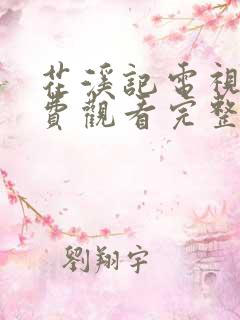 茌溪記電視
費觀看完整
劉翔宇